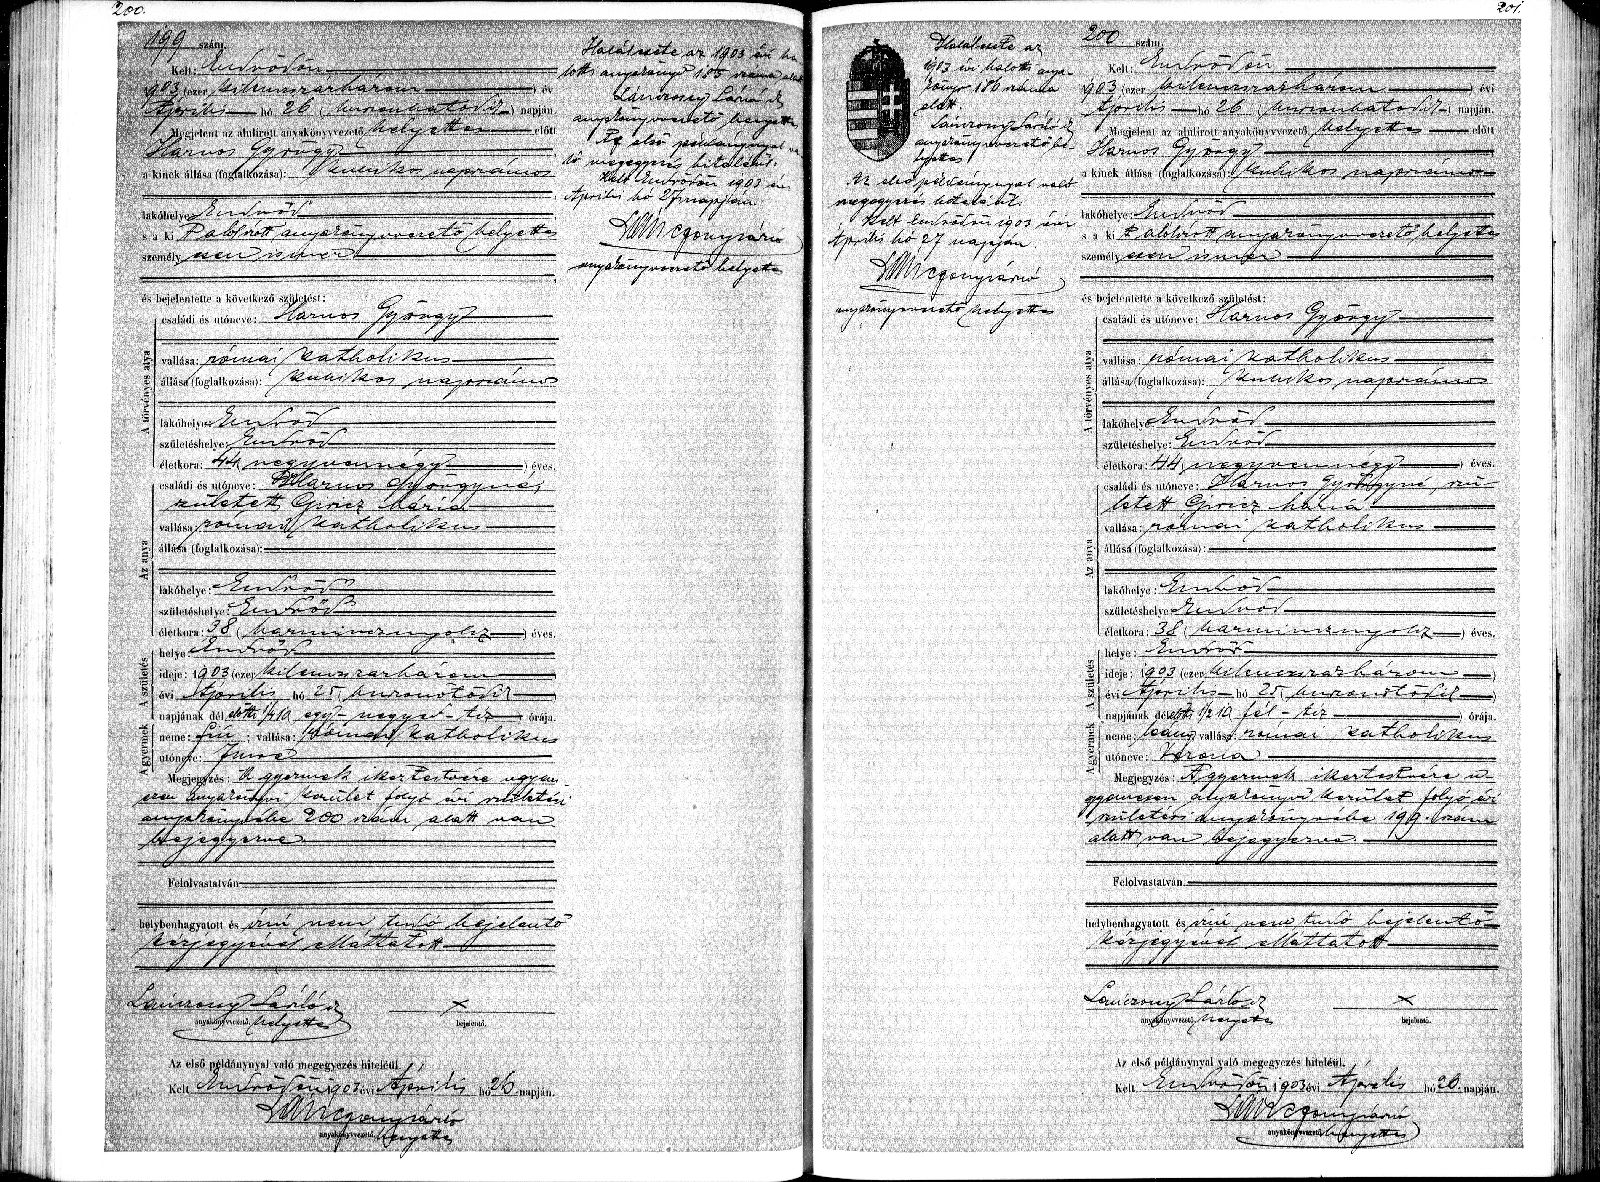 200.
199 szám.
Kelt: Endrődön
1903 (ezer kilenczszázhárom) évi
Április hó 26 (huszonhatodik) napján.
Megjelent az alulirott anyakönyvvezető helyettes előtt
Harnos György
a kinek állása (foglalkozása): kubikos napszámos
lakóhelye: Endrőd
s a ki t alólirott anyakönyvvezető helyettes
személyesen ismer
és bejelentette a következő születést:
A törvényes atya
családi és utóneve: Harnos György
vallása: római katholikus
állása (foglalkozása): kubikos napszámos
lakóhelye: Endrőd
születéshelye: Endrőd
életkora: 44 (negyvennégy) éves.
Az anya
családi és utóneve: Harnos Györgyné,
született Mária
vallása: római katholikus
állása (foglalkozása):
lakóhelye: Endrőd
születéshelye: Endrőd
életkora: 38 (harmincznyolcz) éves.
A születés
helye: Endrőd
ideje: 1903 (ezer kilenczszázhárom)
évi Április hó 25 (huszonötödik)
napjának dél előtti 1/4 10 egy-negyed-tiz órája.
A gyermek
neme: fiú; vallása: római katholikus
utóneve: Imre
Megjegyzés: A gyermek ikertestvére ugyan
ezen anyakönyvi kerület folyó évi születési
anyakönyvébe 200 szám alatt van
bejegyezve.
Felolvastatván
helybenhagyatott és irni nem tudó bejelentő
kézjegyével elláttatott
Lánczony László
anyakönyvvezető, helyettes
x
bejelentő.
Az első példánynyal való megegyezés hiteléül.
Kelt Endrődön 1903 évi Április hó 26 napján.
anyakönyvvezető, helyettes
Halálesete az 1903 évi ha
lotti anyakönyv 185 száma alatt
Lánczony László
anyakönyvvezető helyettes
Az első példánynyal va
ló megegyezés hiteléül.
Kelt Endrődön 1903 évi
Április hó 27 napján
anyakönyvvezető helyettes
201.
Halálesete az
1903 évi halotti anya-
könyv 186 száma
alatt
Lánczony László
anyakönyvvezető he-
lyettes
Az első példánynyal való
megegyezés hiteléül.
Kelt Endrődön 1903 évi
Április hó 27 napján
anyakönyvvezető helyettes
200 szám.
Kelt: Endrődön
1903 (ezer kilenczszázhárom) évi
Április hó 26 (huszonhatodik) napján.
Megjelent az alulirott anyakönyvvezető, helyettes előtt
Harnos György
a kinek állása (foglalkozása): kubikos napszámos
lakóhelye: Endrőd
s a ki t alólirott anyakönyvvezető helyettes
személyesen ismer
és bejelentette a következő születést:
A törvényes atya
családi és utóneve: Harnos György
vallása: római katholikus
állása (foglalkozása): kubikos napszámos
lakóhelye: Endrőd
születéshelye: Endrőd
életkora: 44 (negyvennégy) éves.
Az anya
családi és utóneve: Harnos Györgyné, szü-
letett Mária
vallása: római katholikus
állása (foglalkozása):
lakóhelye: Endrőd
születéshelye: Endrőd
életkora: 38 (harmincznyolcz) éves.
A születés
helye: Endrőd
ideje: 1903 (ezer kilenczszázhárom)
évi Április hó 25 (huszonötödik)
napjának délelőtti 1/2 10 fél-tiz órája.
A gyermek
neme: leány; vallása: római katholikus
utóneve: Verona
Megjegyzés: A gyermek ikertestvére u-
gyanezen anyakönyvi kerület folyó évi
születési anyakönyvébe 199. szám
alatt van bejegyezve.
Felolvastatván,
helybenhagyatott és irni nem tudó bejelentő
kézjegyével elláttatott
Lánczony László
anyakönyvvezető, helyettes
x
bejelentő.
Az első példánynyal való megegyezés hiteléül.
Kelt Endrődön 1903 évi Április hó 26. napján.
anyakönyvvezető, helyettes